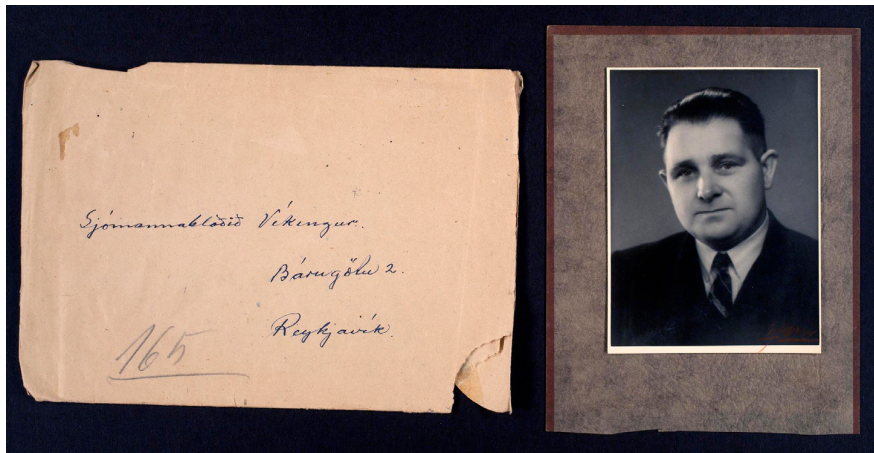 Sjómannablòðið Víkingur.
Bárugötu 2.
Reykjavík.
165